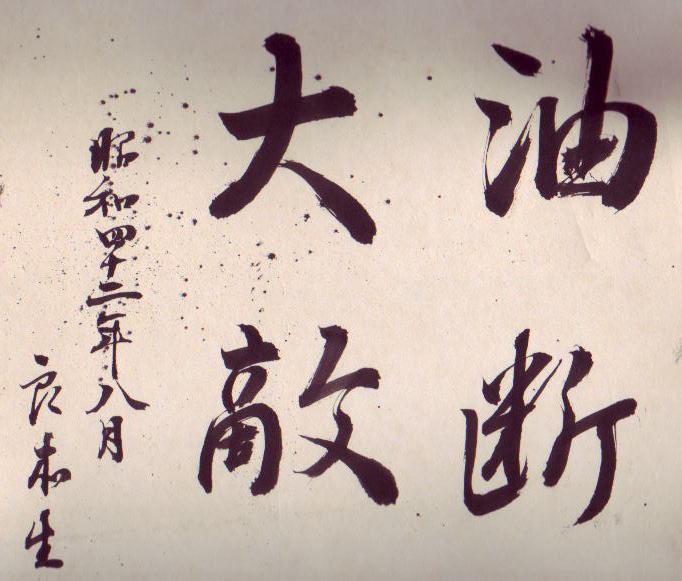 油断
大敵
昭和四十二年八月
良未生